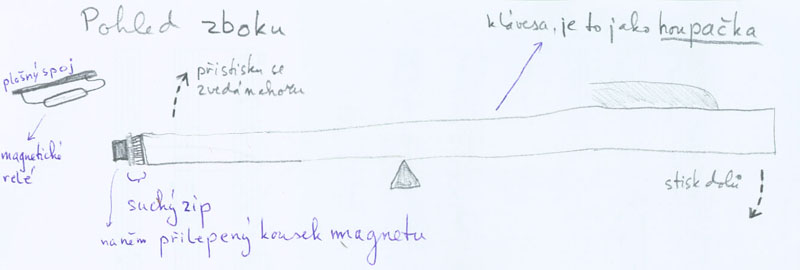 Pohled zboku
klávesa, je to jako houpačka
plošný spoj
při stisku se
zvedá nahoru
magnetické
relé
stisk dolů
suchý zip
na něm přilepený kousek magnetu